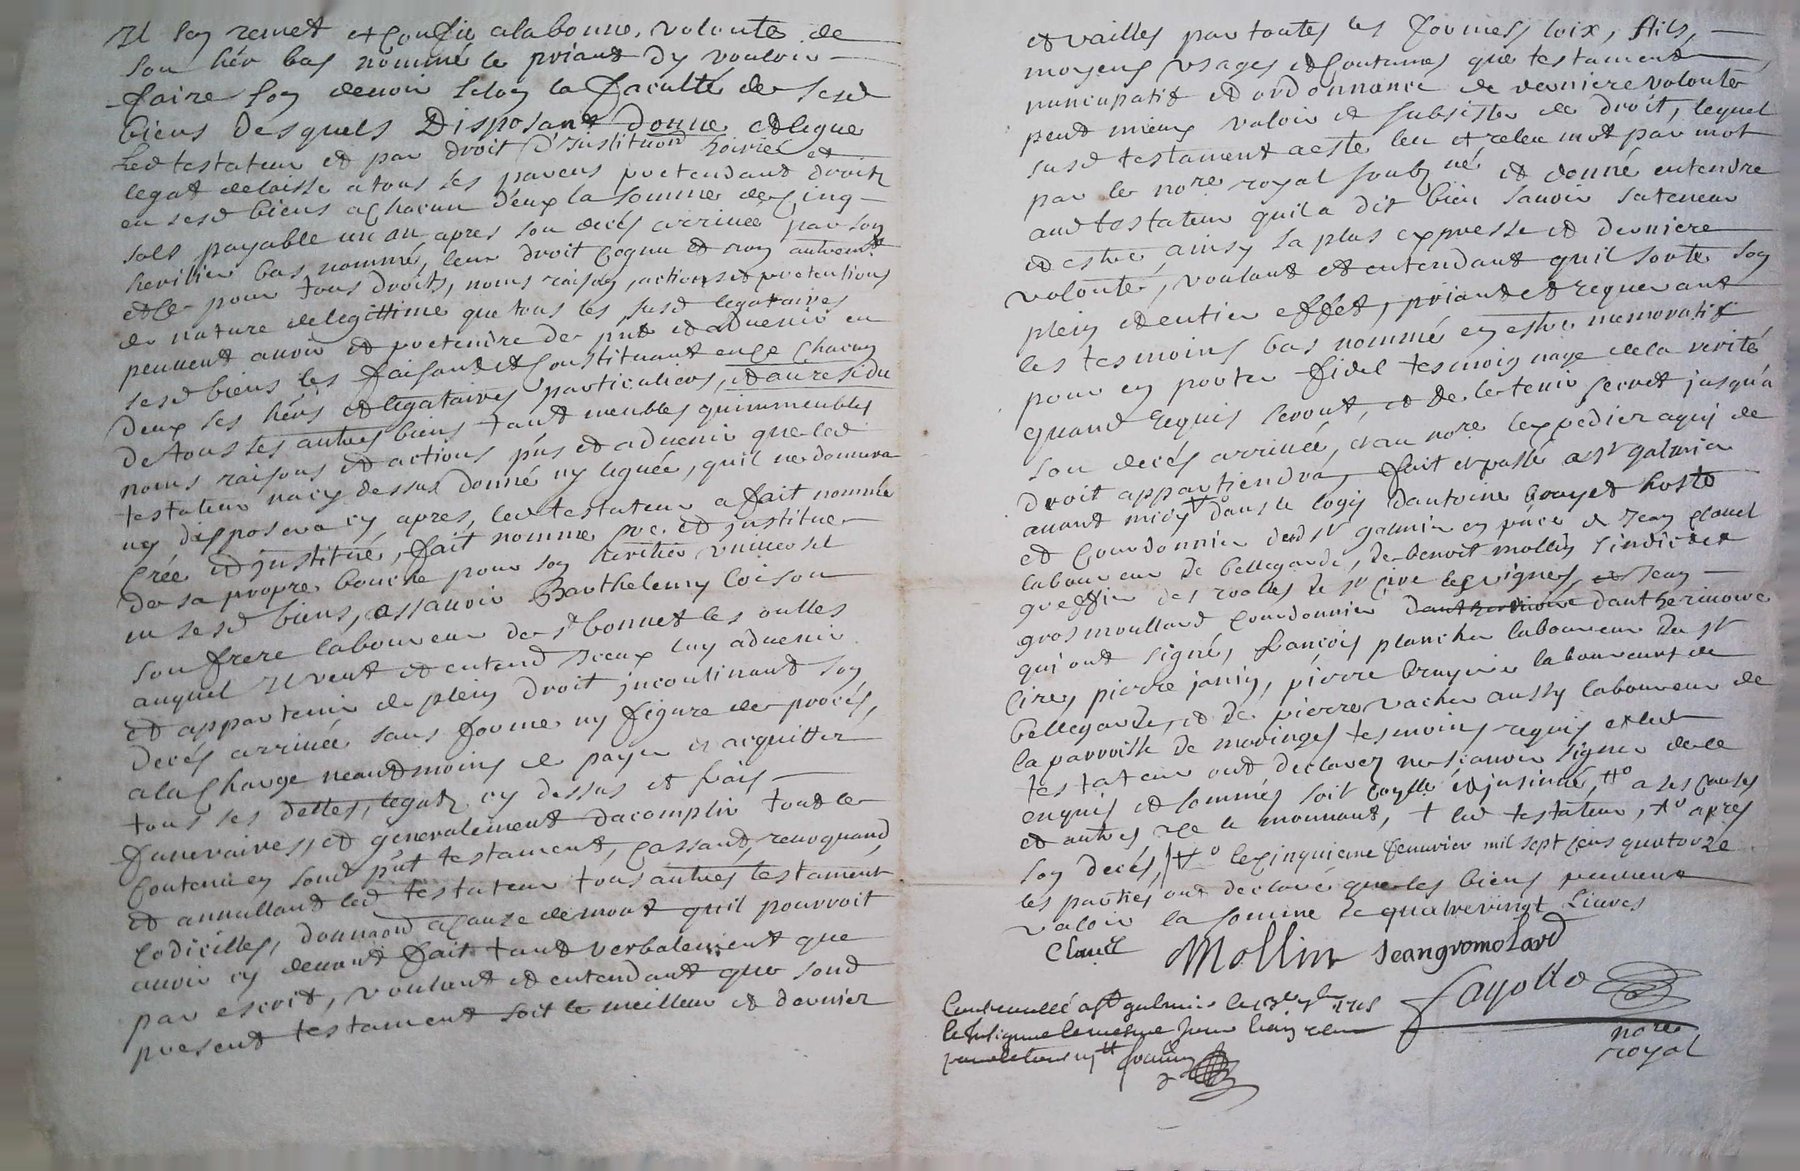 Il sen remet et confie a la bonne volonté de
son hér bas nommé le priant dy vouloir
faire son devoir selon la faculté de sesd
biens desquels Disposant donne et legue
led testateur et par droit d'institution hoirie et
legat delaisse a tous ses parens pretendant droit
en sesd biens a chacun deux la somme de Cinq
sols payable un an apres son decés arrivée par son
heritier bas nommé, leur droit cognu et non autremt
et ce pour tous droits, noms raison, actions et pretentions
de nature de legittime que tous les susd legataires
peuvent avoir et pretendre de pnt et advenir en
sesd biens les faisant et constituant en ce chacun
deux ses hérs et legataires particuliers, et au residu
de tous ses autres biens tant meubles qu immeubles
noms raisons et actions pńs et advenir que led
testateur na cy dessus donné ny leguée, quil ne donnera
ny disposera cy apres, led testateur a fait nommé
créé et institué, fait nomme cree et institue
de sa propre bouche pour son heritier universel
en sesd biens, assavoir Barthelemy loison
son frere laboureur de st bonnet les oulles
auquel il veut et entend iceux luy advenir
et appartenir de plein droit incontinant son
decés arrivée sans forme ny figure de procés,
a la charge neantmoins de payer et acquitter
tous ses dettes, legatz cy dessus et frais
funeraires, et generalement dacomplir tout le
contenu en sond pńt testament, cassant, revoquand
et annullant led testateur tous autres testament
Codicilles, donnaon a cause de mort quil pourroit
avoir cy devant fait tant verbalement que
par escrit, voulant et entendant que sond
present testament soit le meilleur et dernier
et vailles par toutes les formes loix, stils,
moyens usages et coutumes que testament
nuncupatif et ordonnance de derniere volonté
peut mieux valoir et subsister de droit, lequel
susd testament a esté leu et releu mot par mot
par le nore royal soubzné et donné entendre
aud testateur quil a dit bien savoir sa teneur
et estre ainsy sa plus expresse et derniere
volonté, voulant et entendant quil sorte son
plein et entier effet, priant et requerant
les tesmoins bas nommé en estre memoratif
pour en porter fidel tesmoignage de la verité
quand requis seront, et de le tenir secret jusqu'a
son decés arrivée, et au nore lexpedier a qui de
droit appartiendra, fait et passé a st galmier
avant midy dans le logis dantoine bruyet hoste
et Courdonnier dud st galmier en pńce de Jean Clauel
laboureur de bellegarde, de benoit mollin sindic et
greffier des roolles de st Cire les vignes, et Jean
gros moullard Courdonnier dautherivoire dautherivoire
qui ont signé, francois plancher laboureur de st
Cire, pierre janin, pierre bruyere laboureurs de
bellegarde, et de pierre vacher aussy laboureur de
la parroisse de maringes tesmoins requis et led
testateur ont declarez ne scavoir signer de ce
enquis et sommés soit coyllé et insinué, a ses causes
et autres le mouvant, + led testateur, apres
son decés, le cinquieme feuvrier mil sept cens quatorze
les parties ont declaré que les biens peuvent
valoir la somme de quatre vingt Livres
Clauel Mollin Jeangromolard
fayolle
nore
royal
Controuellé a st galmier le